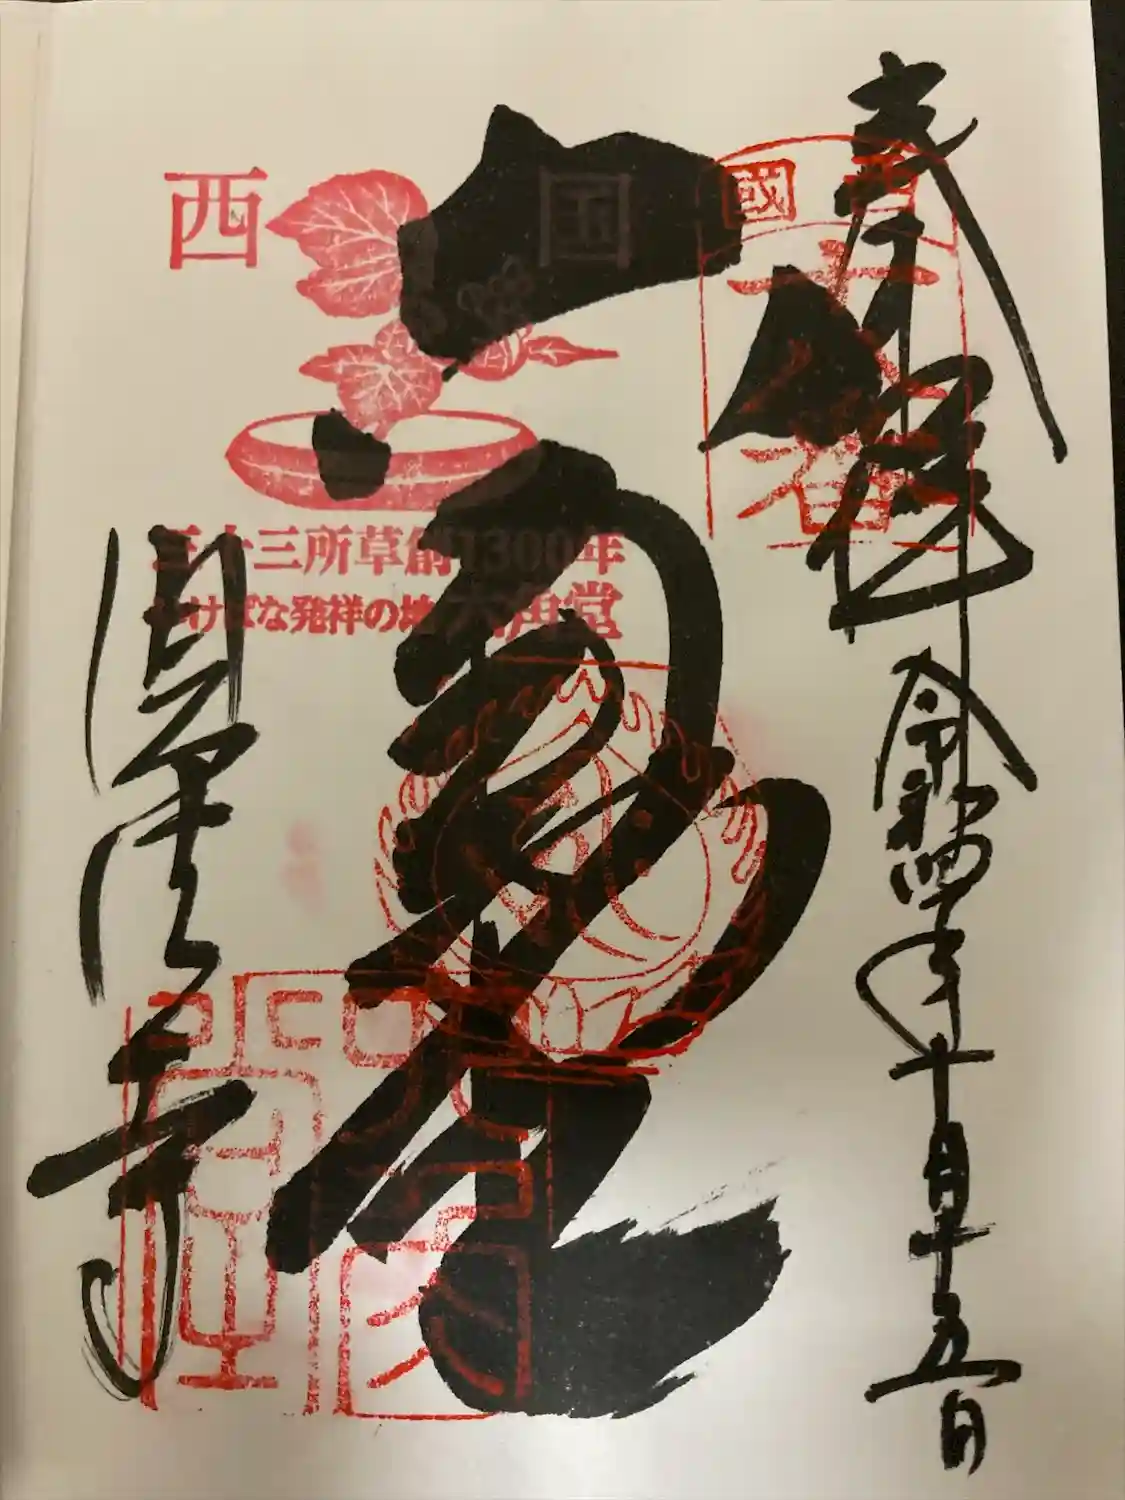 奉拝
令和四年十月十五日
西國
十八番
六角堂
西国
三十三所草創1300年
いけばな発祥の地 六角堂
頂法寺